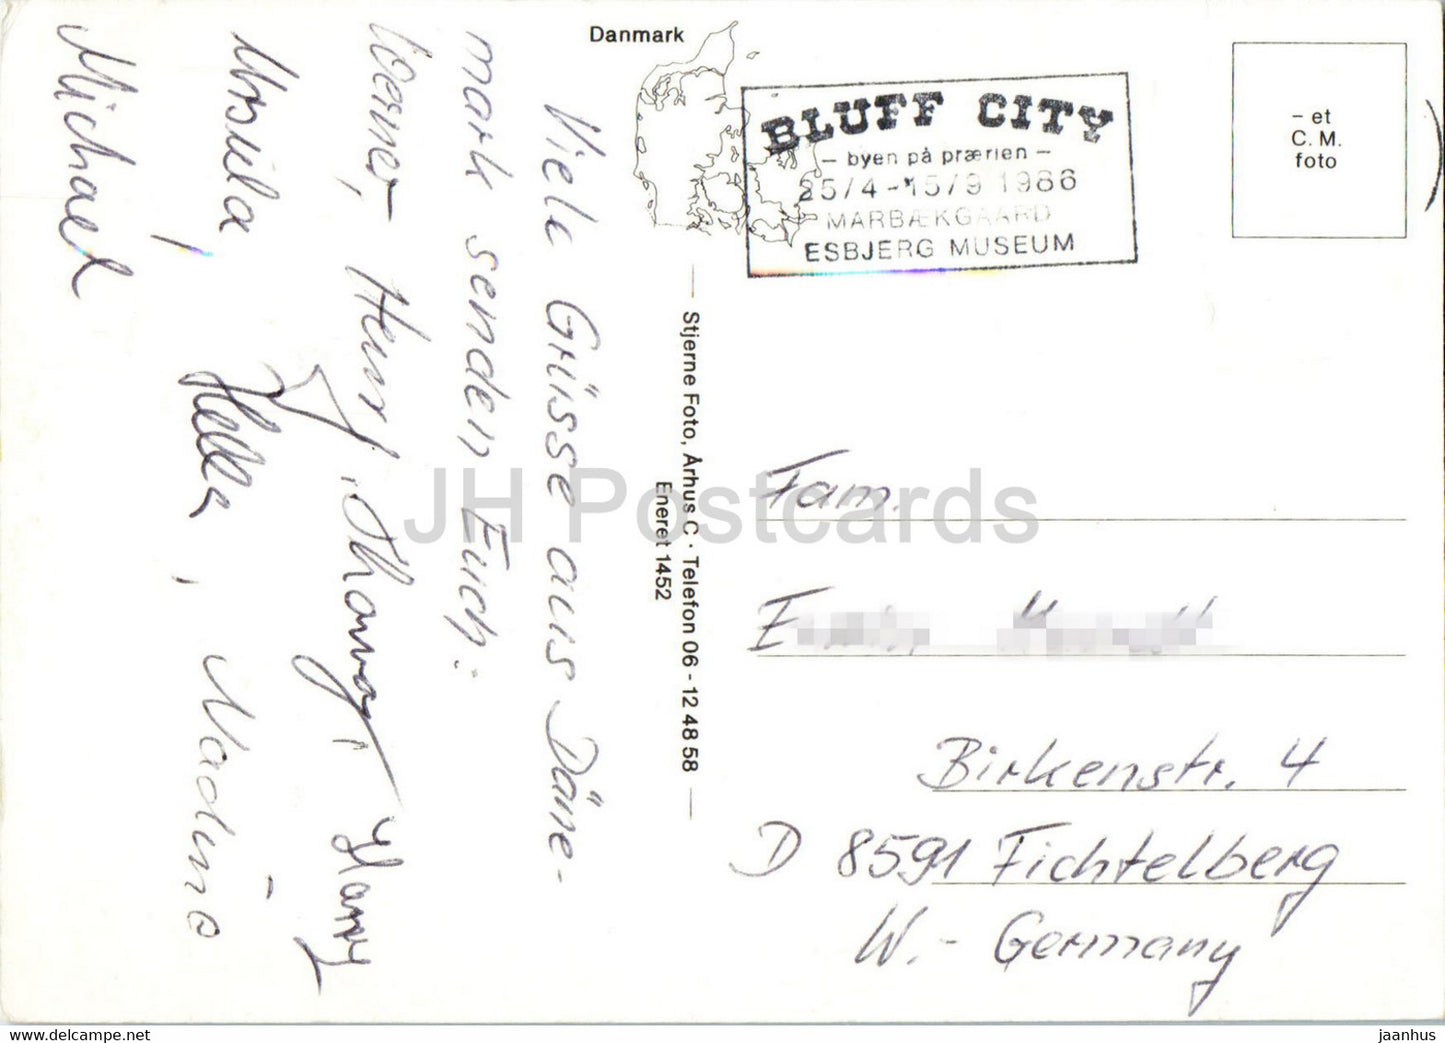 Danmark
BLUFF CITY
– byen på prærien –
25/4 - 15/9 1986
MARBÆKGAARD
ESBJERG MUSEUM
– et
C. M.
foto
Viele Grüsse aus Däne-
mark senden Euch:
Werner, Henry, Hanny
Ursula, Hella, Nadine
Michael
Stjerne Foto, Århus C · Telefon 06 - 12 48 58
Eneret 1452
Fam.
Birkenstr. 4
D 8591 Fichtelberg
W.- Germany
JH Postcards
www.delcampe.net
jaanhus